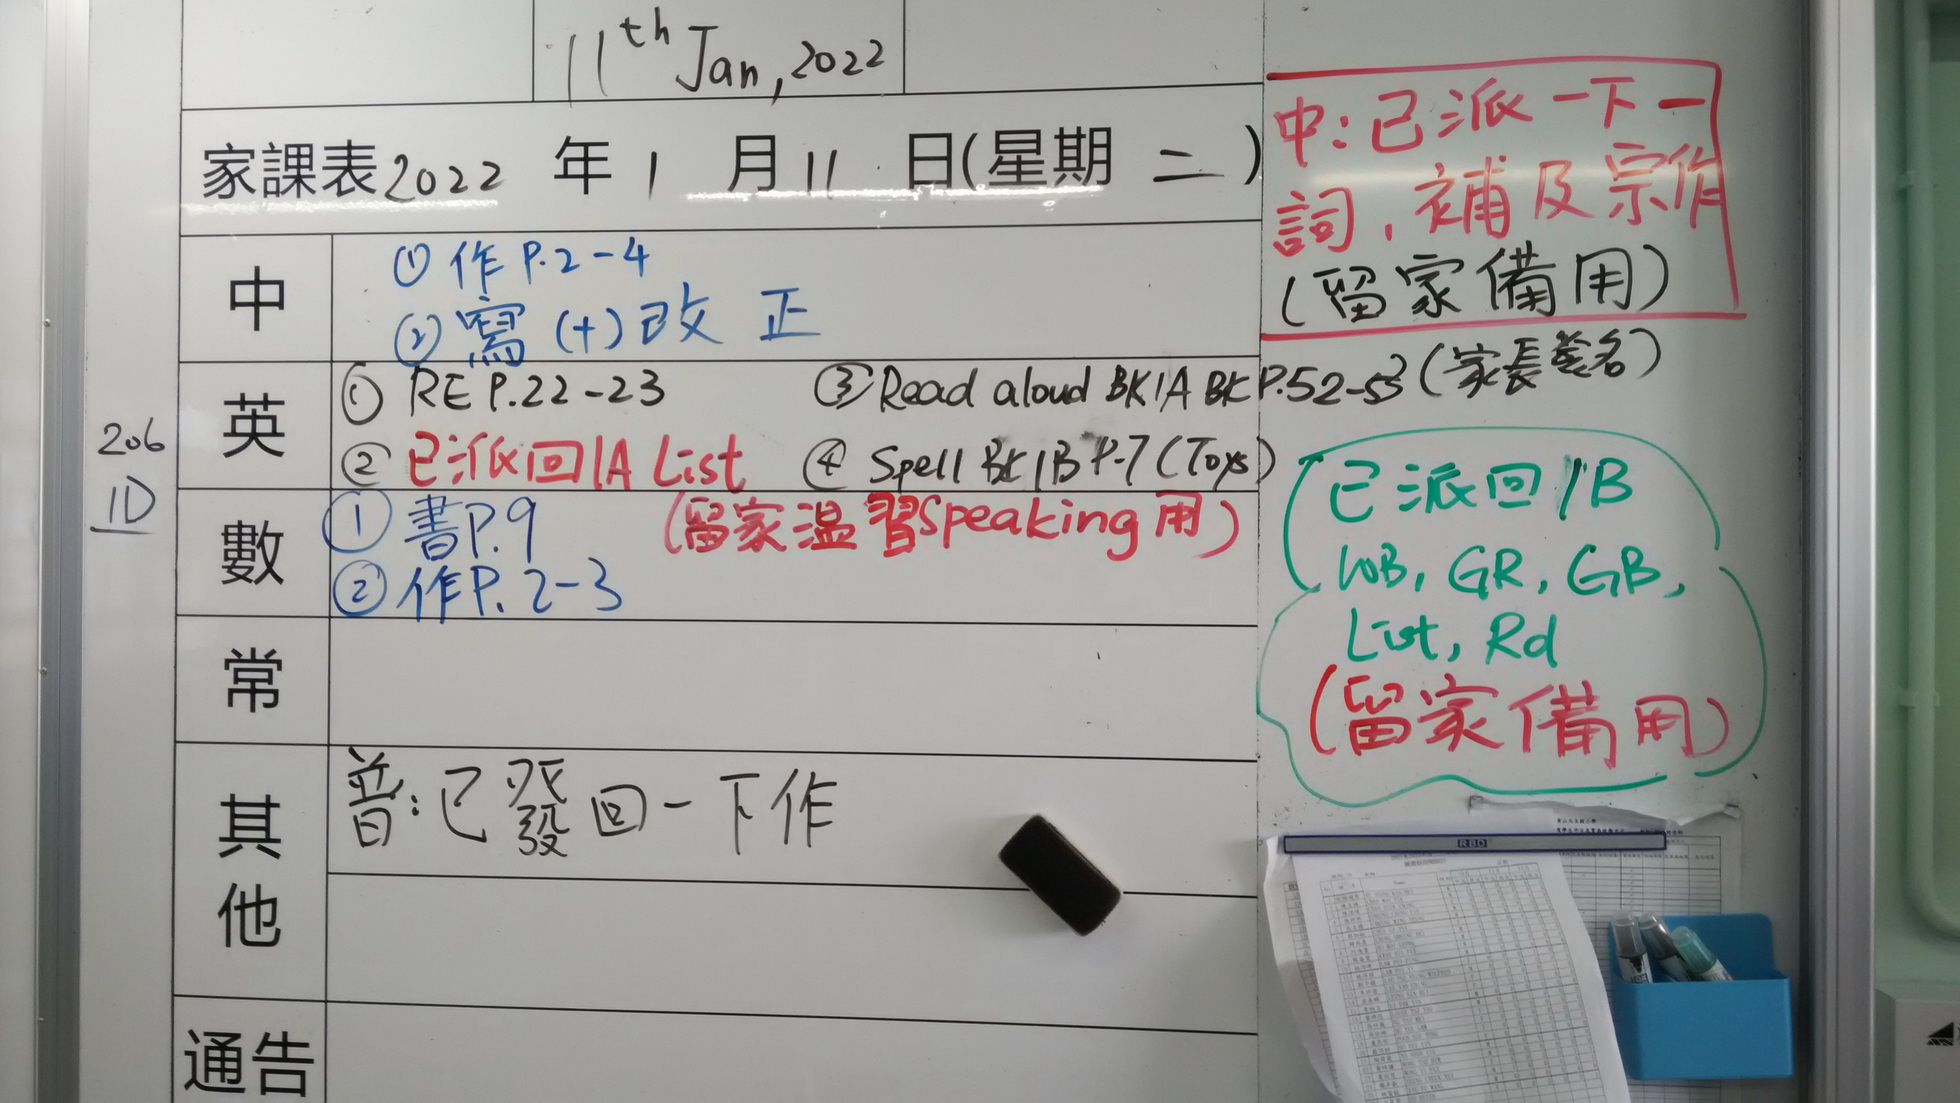 11th Jan, 2022
家課表2022 年 1 月 11 日(星期 二 )
中
① 作 P.2-4
② 寫 (十) 改 正
英
① RE P.22-23
③ Read aloud BK1A BK P.52-53 (家長簽名)
② 已派回1A List
④ Spell BK1B P.7 (Toys)
(留家温習Speaking用)
數
① 書P.9
② 作P. 2-3
常
其他
普:已發回一下作
通告
206
1D
中:已派一下一
詞,補及宗作
(留家備用)
已派回1B
WB, GR, GB,
List, Rd
(留家備用)
RBD